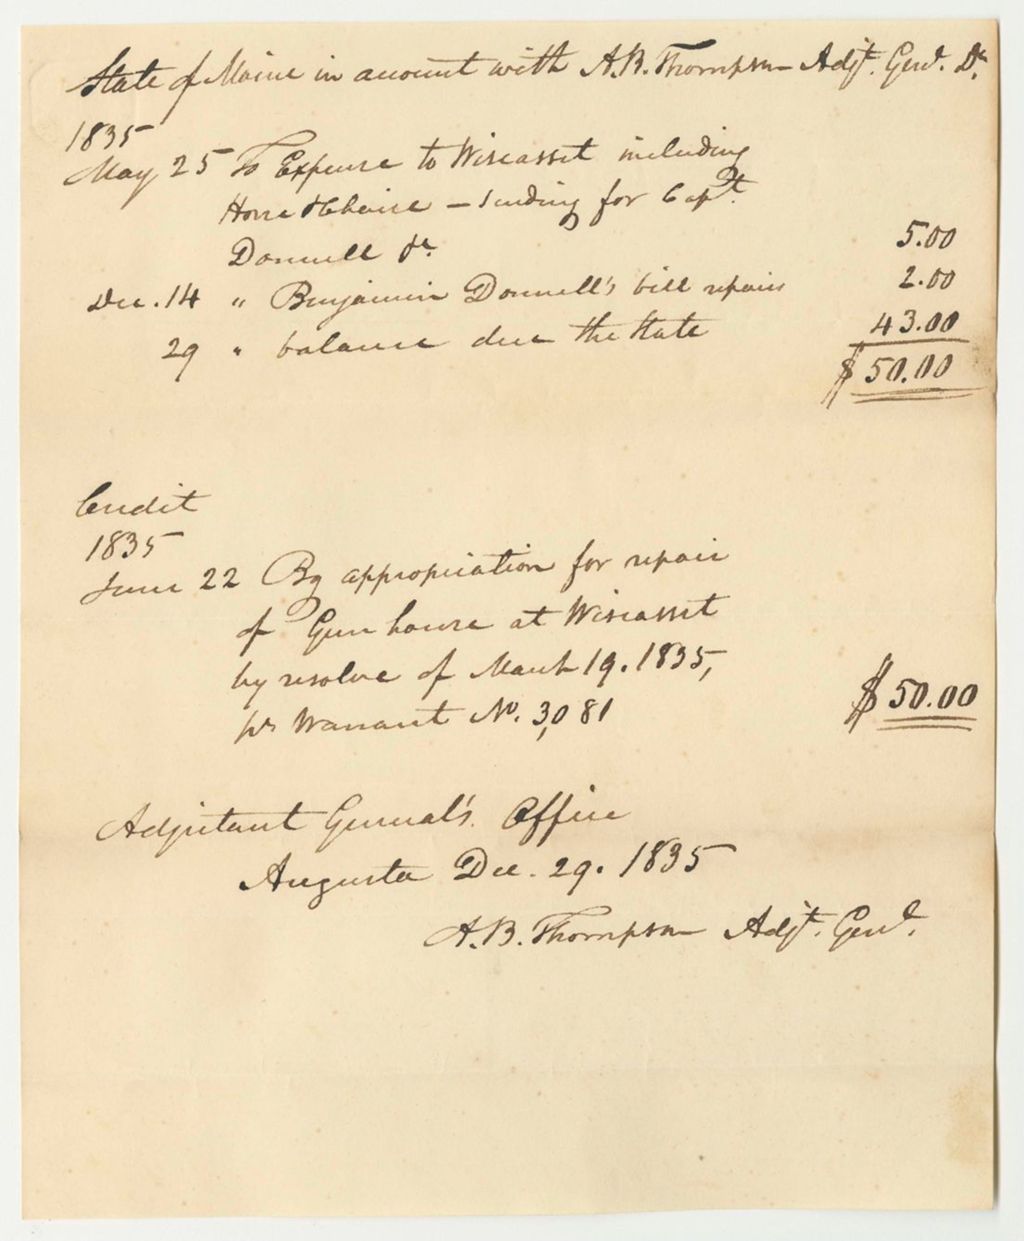 State of Maine in account with A.B. Thompson Adjt. Genl. Dr.
1835
May 25 To Expense to Wiscasset including
Horse & Chaise – sending for Capt.
Donnell &c.
5.00
Dec. 14 " Benjamin Donnell's bill repairs
2.00
29 " balance due the State
43.00
$50.00
Credit
1835
June 22 By appropriation for repair
of Gun house at Wiscasset
by resolve of March 19. 1835,
pr Warrant No. 3,081
$50.00
Adjutant General's Office
Augusta Dec. 29. 1835
A.B. Thompson Adjt. Genl.